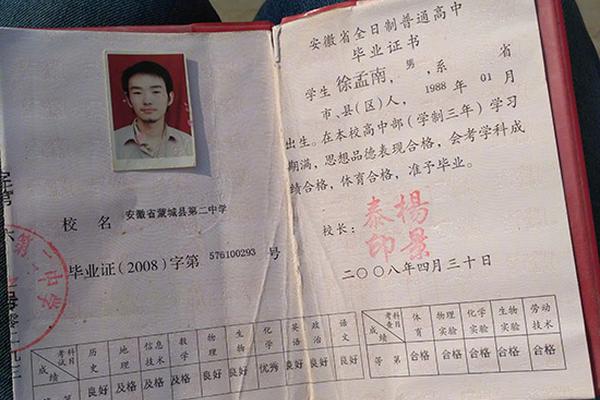 校名 安徽省蒙城县第二中学
毕业证（2008）字第 576100293 号
考试科目 历史 地理 信息技术 数学 物理 生物 化学 英语 政治 语文
成绩 良好 及格 及格 及格 良好 良好 优秀 良好 良好 良好
安徽省全日制普通高中
毕业证书
学生 徐孟南，男，系 省
市、县（区）人，1988 年 01 月
出生。在本校高中部（学制三年）学习
期满，思想品德表现合格，会考学科成
绩合格，体育合格，准予毕业。
校长：
楊景泰印
二〇〇八年四月三十日
考查科目 体育 物理实验 化学实验 生物实验 劳动技术
成绩 等第 合格 合格 合格 合格 合格